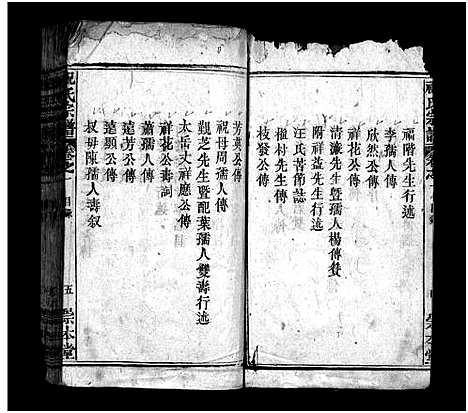 福階先生行述
李孺人傳
欣然公傳
祥花公傳
清濂先生暨孺人楊傳贊
開祥益先生行述
汪氏苦節誌
植村先生傳
枝發公傳
芳英公傳
祝母周孺人傳
觀芝先生暨配葉孺人雙壽行述
太岳丈祥應公傳
祥花公壽詞
蕭孺人傳
蓮芳公傳
達顯公傳
叔母陳孺人壽叙
氏宗譜
目錄
五
崇本堂